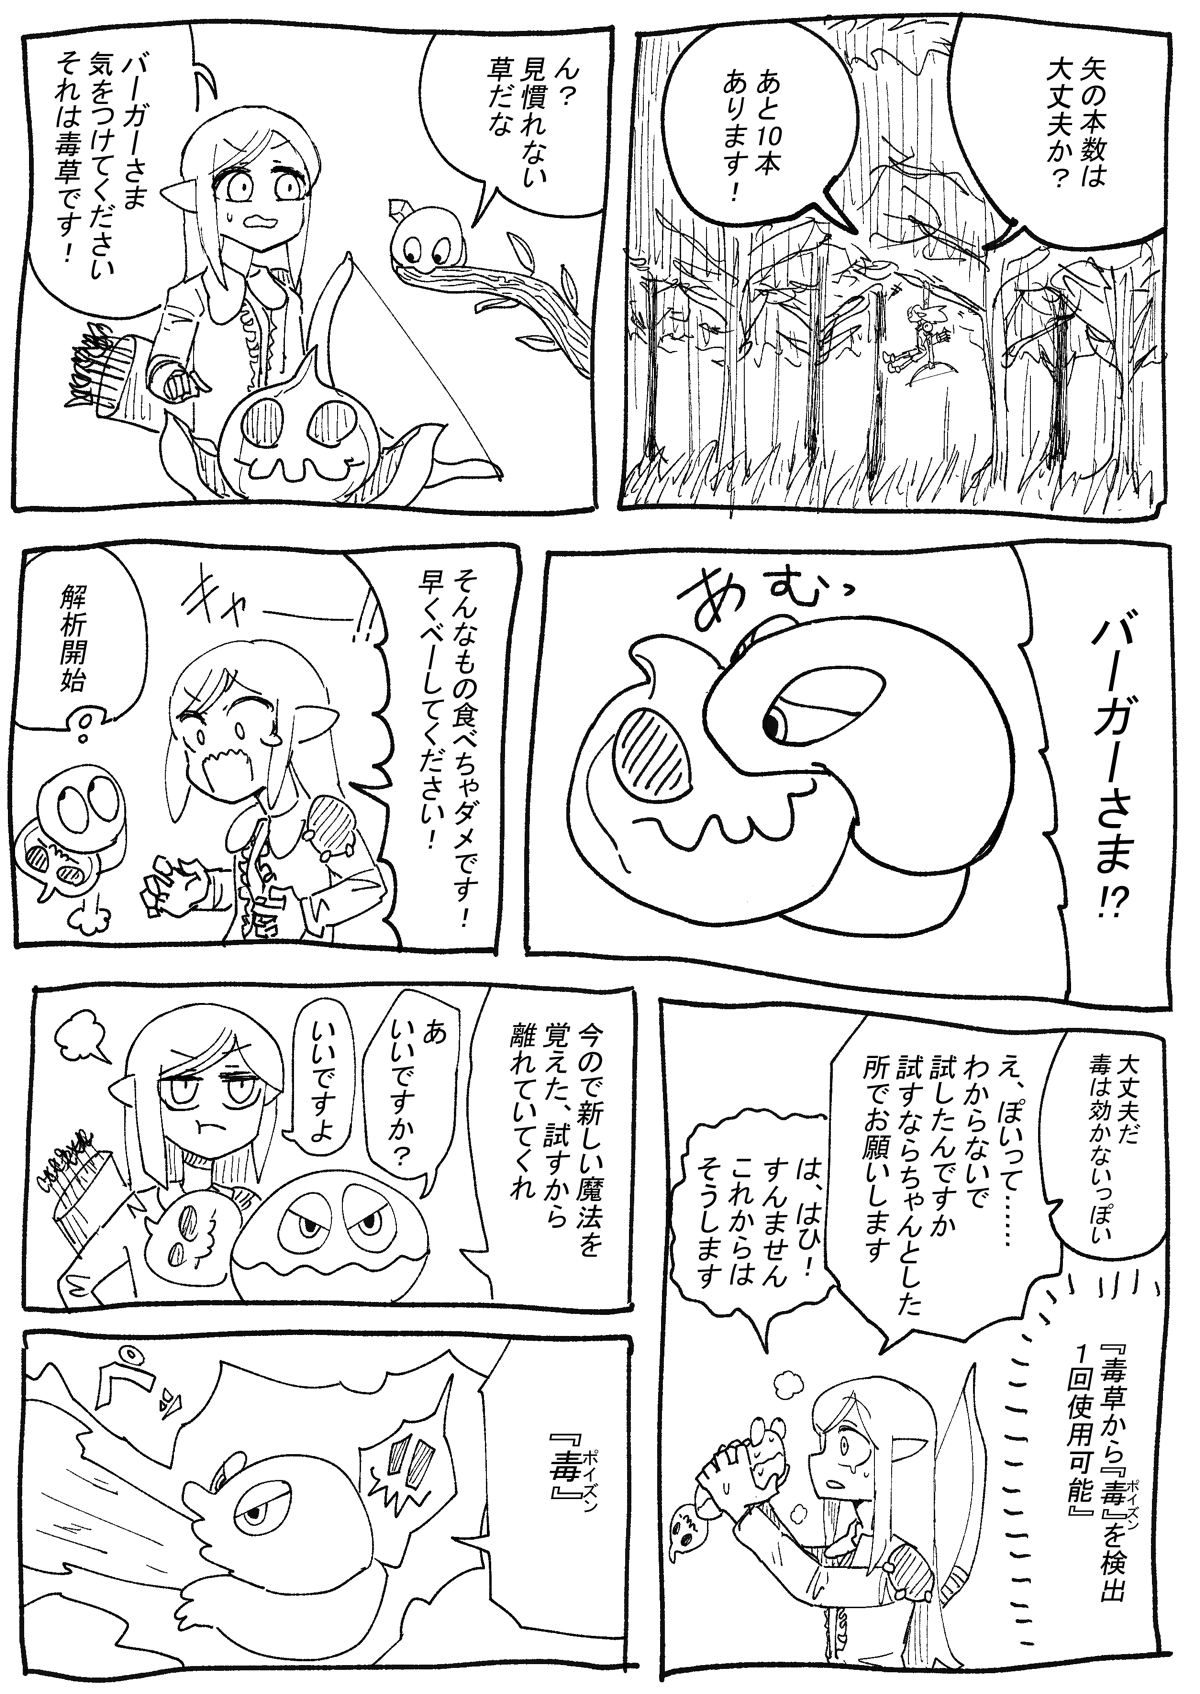 矢の本数は
大丈夫か?
あと10本
あります!
ん?
見慣れない
草だな
バーガーさま
気をつけてください
それは毒草です!
バーガーさま!?
あむっ
そんなもの食べちゃダメです!
早くべーしてください!
ギャー!!
解析開始
大丈夫だ
毒は効かないっぽい
『毒草から『毒』を検出
ポイズン
1回使用可能』
え、ぽいって……
わからないで
試したんですか
試すならちゃんとした
所でお願いします
は、はひ!
すんません
これからは
そうします
今ので新しい魔法を
覚えた、試すから
離れていてくれ
あ
いいですか?
いいですよ
『毒』
ポイズン
ぺっ